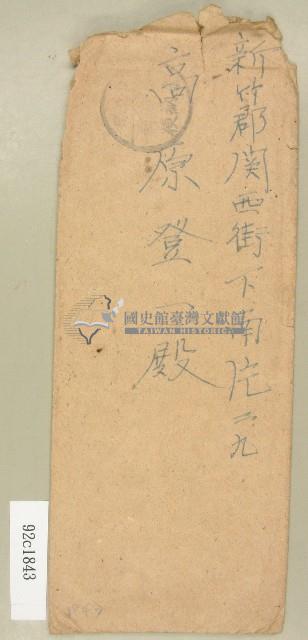 新竹郡関西街下南片二九
高原登一殿
國史館臺灣文獻館
TAIWAN HISTORICA
92c1843